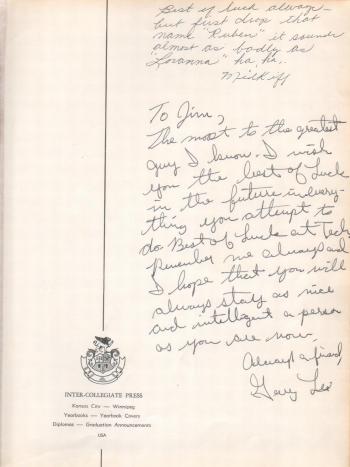 Best of luck always —
but first drop that
name "Ruben" it sounds
almost as badly as
"Lovanna" ha, ha.
Midkiff
To Jim,
The most to the greatest
guy I know. I wish
you the best of Luck
in the future in every-
thing you attempt to
do. Best of Luck at Tech.
Remember me always and
I hope that you will
always stay as nice
and intelligent a person
as you are now.
Always a friend,
Gary
INTER-COLLEGIATE PRESS
Kansas City — Winnipeg
Yearbooks — Yearbook Covers
Diplomas — Graduation Announcements
USA